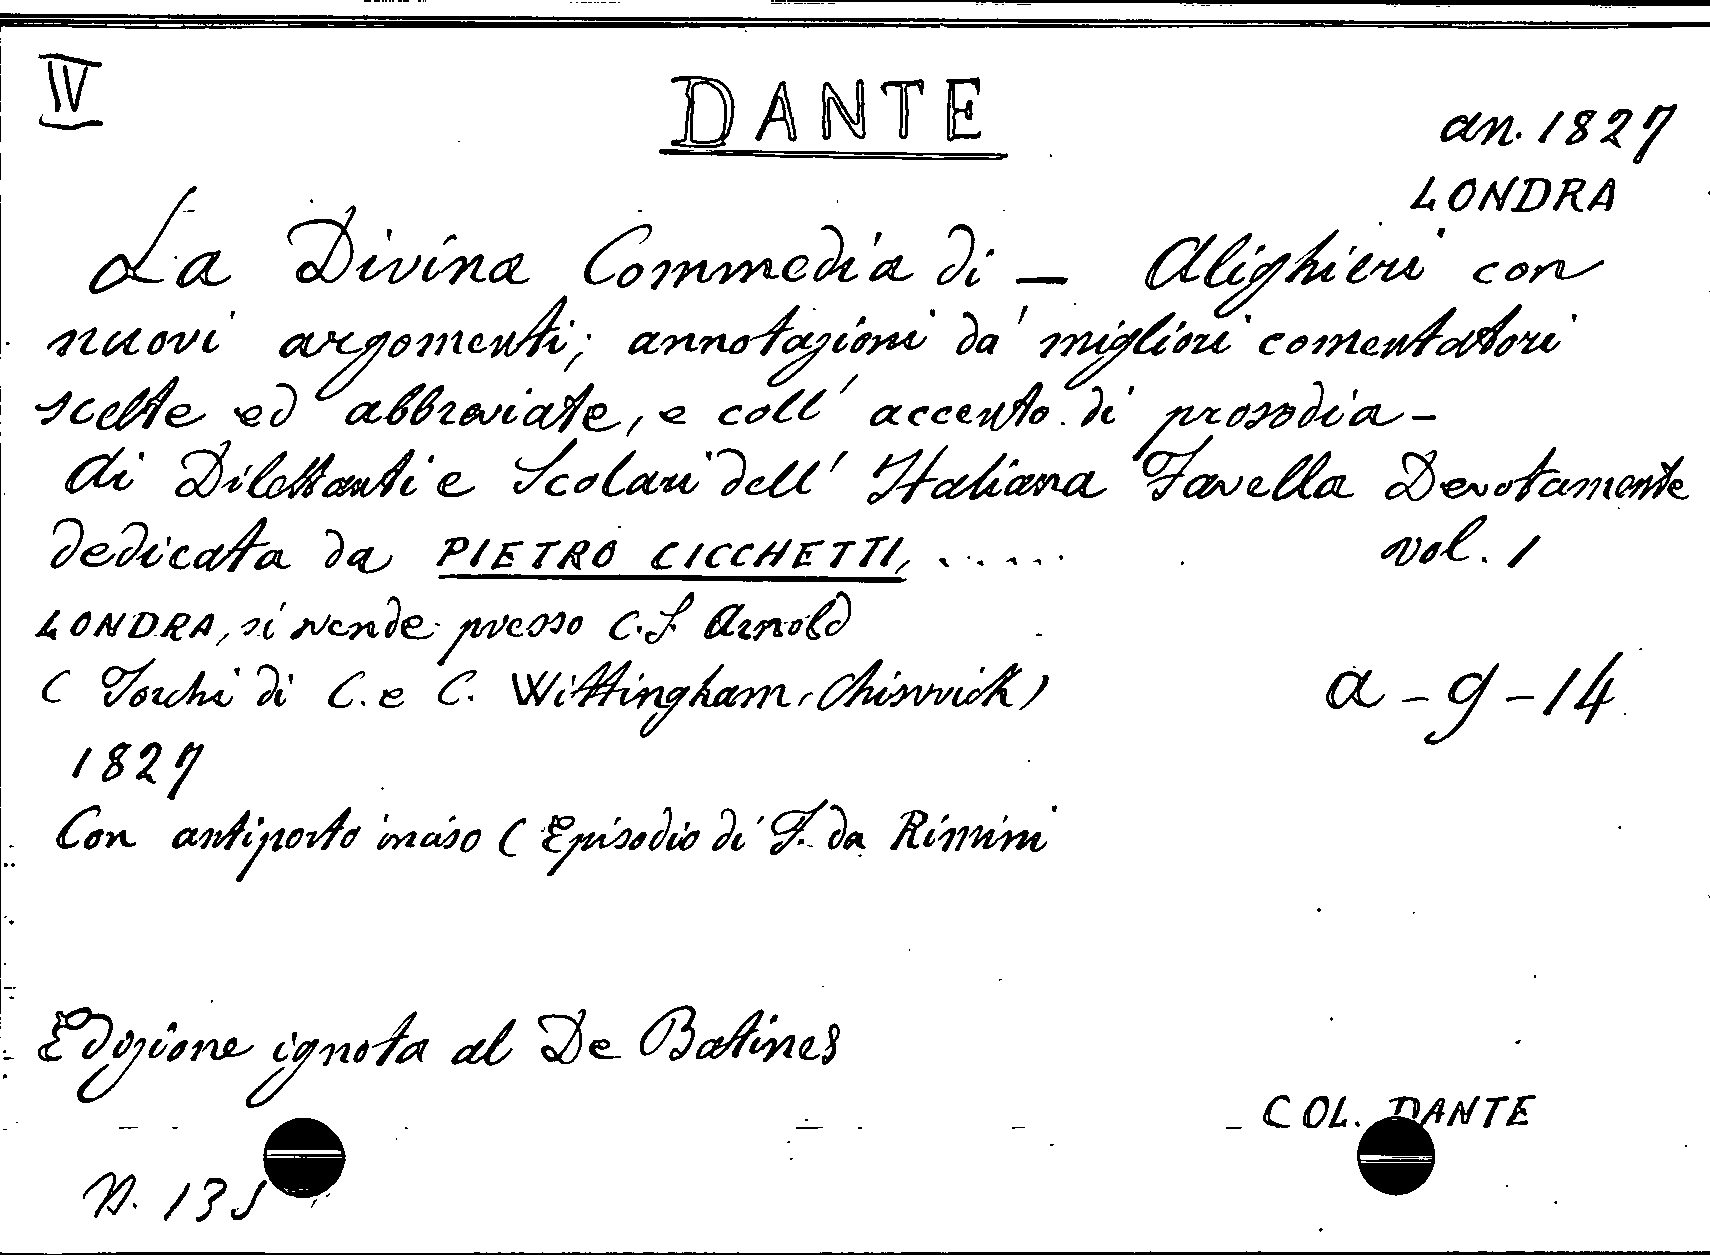 IV
DANTE
an. 1827
LONDRA
La Divina Commedia di — Alighieri con
nuovi argomenti; annotazioni da' migliori comentatori
scelte ed abbreviate, e coll' accento di prosodia -
Ai Dilettanti e Scolari dell' Italiana Favella Devotamente
dedicata da PIETRO CICCHETTI, ......
vol. 1
LONDRA, si vende presso C.F. Arnold
( Torchi di C. e C. Wittingham, Chiswick)
a - g - 14
1827
Con antiporto inciso ( Episodio di F. da Rimini
Edizione ignota al De Batines
COL. DANTE
N. 135